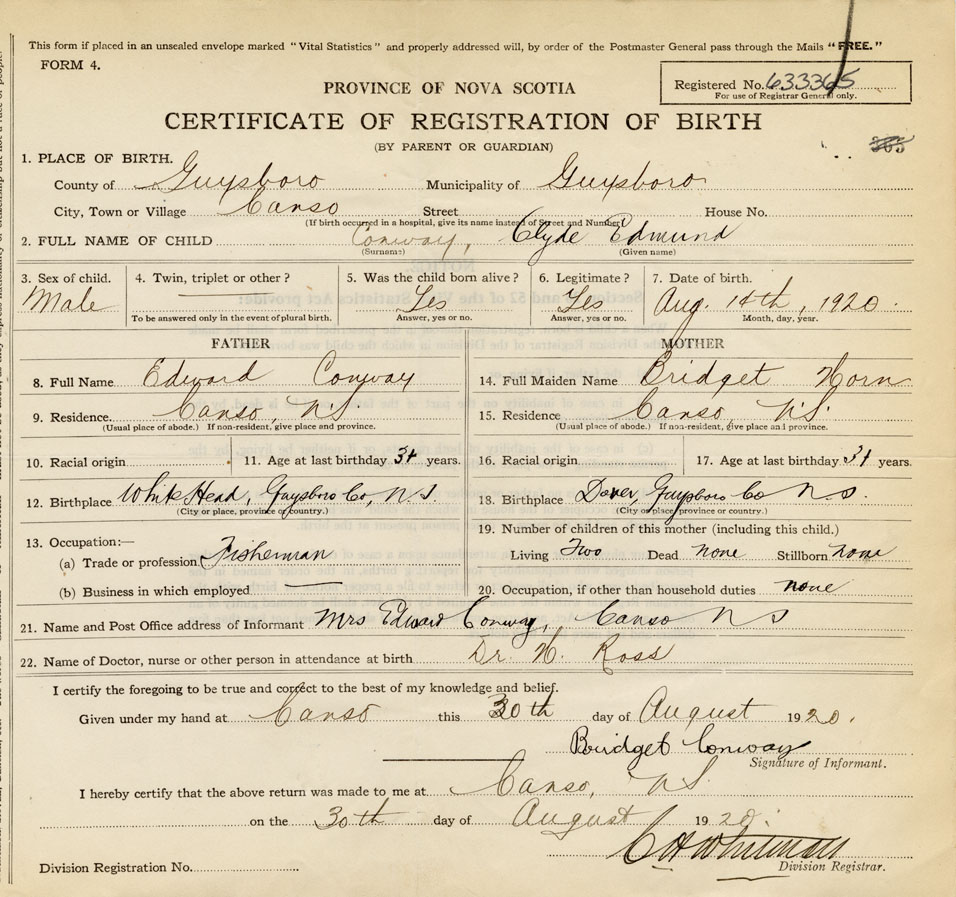 This form if placed in an unsealed envelope marked "Vital Statistics" and properly addressed will, by order of the Postmaster General pass through the Mails "FREE."
FORM 4.
Registered No. 633365
For use of Registrar General only.
PROVINCE OF NOVA SCOTIA
CERTIFICATE OF REGISTRATION OF BIRTH
(BY PARENT OR GUARDIAN)
365
1. PLACE OF BIRTH.
County of Guysboro Municipality of Guysboro
City, Town or Village Canso Street House No.
(If birth occurred in a hospital, give its name instead of Street and Number)
2. FULL NAME OF CHILD Conway, Clyde Edmund
(Surname) (Given name)
3. Sex of child. 4. Twin, triplet or other? 5. Was the child born alive? 6. Legitimate? 7. Date of birth.
Male Yes Yes Aug. 14th, 1920.
To be answered only in the event of plural birth. Answer, yes or no. Answer, yes or no. Month, day, year.
FATHER MOTHER
8. Full Name Edward Conway 14. Full Maiden Name Bridget Horn
9. Residence. Canso N.S. 15. Residence Canso, N.S.
(Usual place of abode.) If non-resident, give place and province. (Usual place of abode.) If non-resident, give place and province.
10. Racial origin 11. Age at last birthday years. 16. Racial origin 17. Age at last birthday years.
12. Birthplace White Head, Guysboro Co, N.S. 18. Birthplace Dover, Guysboro Co N.S.
(City or place, province or country.) (City or place, province or country.)
19. Number of children of this mother (including this child.)
13. Occupation:—
(a) Trade or profession Fisherman Living Two Dead none Stillborn none
(b) Business in which employed 20. Occupation, if other than household duties none
21. Name and Post Office address of Informant Mrs Edward Conway, Canso N S
22. Name of Doctor, nurse or other person in attendance at birth Dr. H. Ross
I certify the foregoing to be true and correct to the best of my knowledge and belief.
Given under my hand at Canso this 30th day of August 1920.
Bridget Conway
Signature of Informant.
I hereby certify that the above return was made to me at Canso, N S
on the 30th day of August 1920.
C H Whitman
Division Registration No. Division Registrar.